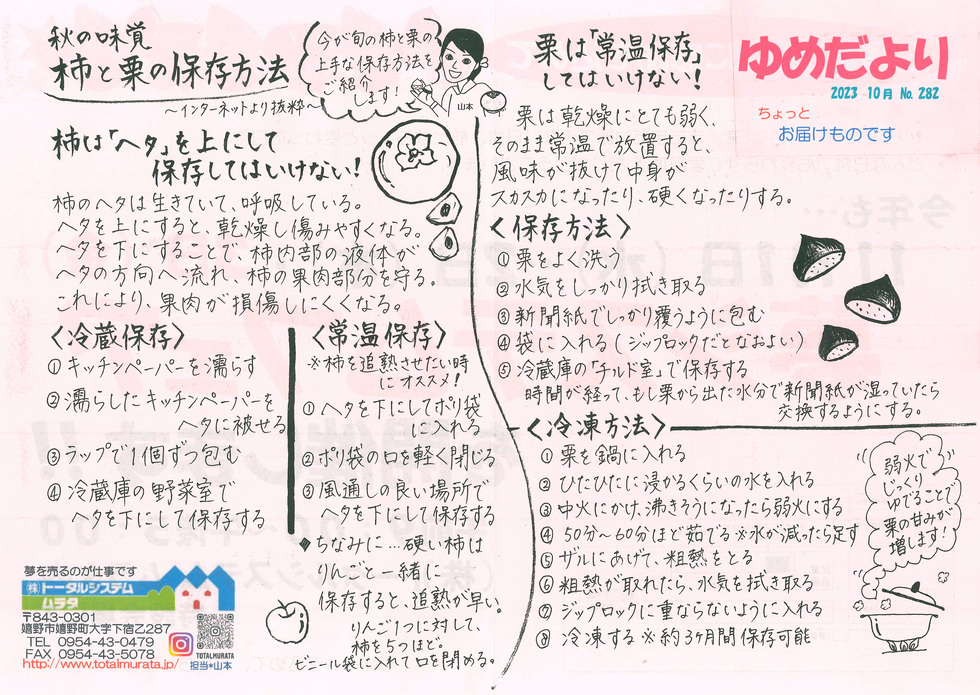 秋の味覚
柿と栗の保存方法
～インターネットより抜粋～
今が旬の柿と栗の
上手な保存方法を
ご紹介
します!
山本
柿は「ヘタ」を上にして
保存してはいけない!
柿のヘタは生きていて、呼吸している。
ヘタを上にすると、乾燥し傷みやすくなる。
ヘタを下にすることで、柿内部の液体が
ヘタの方向へ流れ、柿の果肉部分を守る。
これにより、果肉が損傷しにくくなる。
〈冷蔵保存〉
①キッチンペーパーを濡らす
②濡らしたキッチンペーパーを
ヘタに被せる
③ラップで1個ずつ包む
④冷蔵庫の野菜室で
ヘタを下にして保存する
〈常温保存〉
※柿を追熟させたい時
にオススメ!
①ヘタを下にしてポリ袋
に入れる
②ポリ袋の口を軽く閉じる
③風通しの良い場所で
ヘタを下にして保存する
◆ちなみに…硬い柿は
りんごと一緒に
保存すると、追熟が早い。
りんご1つに対して、
柿を5つほど。
ビニール袋に入れて口を閉める。
夢を売るのが仕事です
(株)トータルシステム
ムラタ
〒843-0301
嬉野市嬉野町大字下宿乙287
TEL 0954-43-0479
FAX 0954-43-5078
http://www.totalmurata.jp/
TOTALMURATA
担当*山本
栗は「常温保存」
してはいけない!
ゆめだより
2023 10月 No. 282
ちょっと
お届けものです
栗は乾燥にとても弱く、
そのまま常温で放置すると、
風味が抜けて中身が
スカスカになったり、硬くなったりする。
〈保存方法〉
①栗をよく洗う
②水気をしっかり拭き取る
③新聞紙でしっかり覆うように包む
④袋に入れる(ジップロックだとなおよい)
⑤冷蔵庫の「チルド室」で保存する
時間が経って、もし栗から出た水分で新聞紙が湿っていたら
交換するようにする。
〈冷凍方法〉
①栗を鍋に入れる
②ひたひたに浸かるくらいの水を入れる
③中火にかけ、沸きそうになったら弱火にする
④50分～60分ほど茹でる ※水が減ったら足す
⑤ザルにあげて、粗熱をとる
⑥粗熱が取れたら、水気を拭き取る
⑦ジップロックに重ならないように入れる
⑧冷凍する ※約3ヶ月間保存可能
弱火で
じっくり
ゆでることで
栗の甘みが
増します!